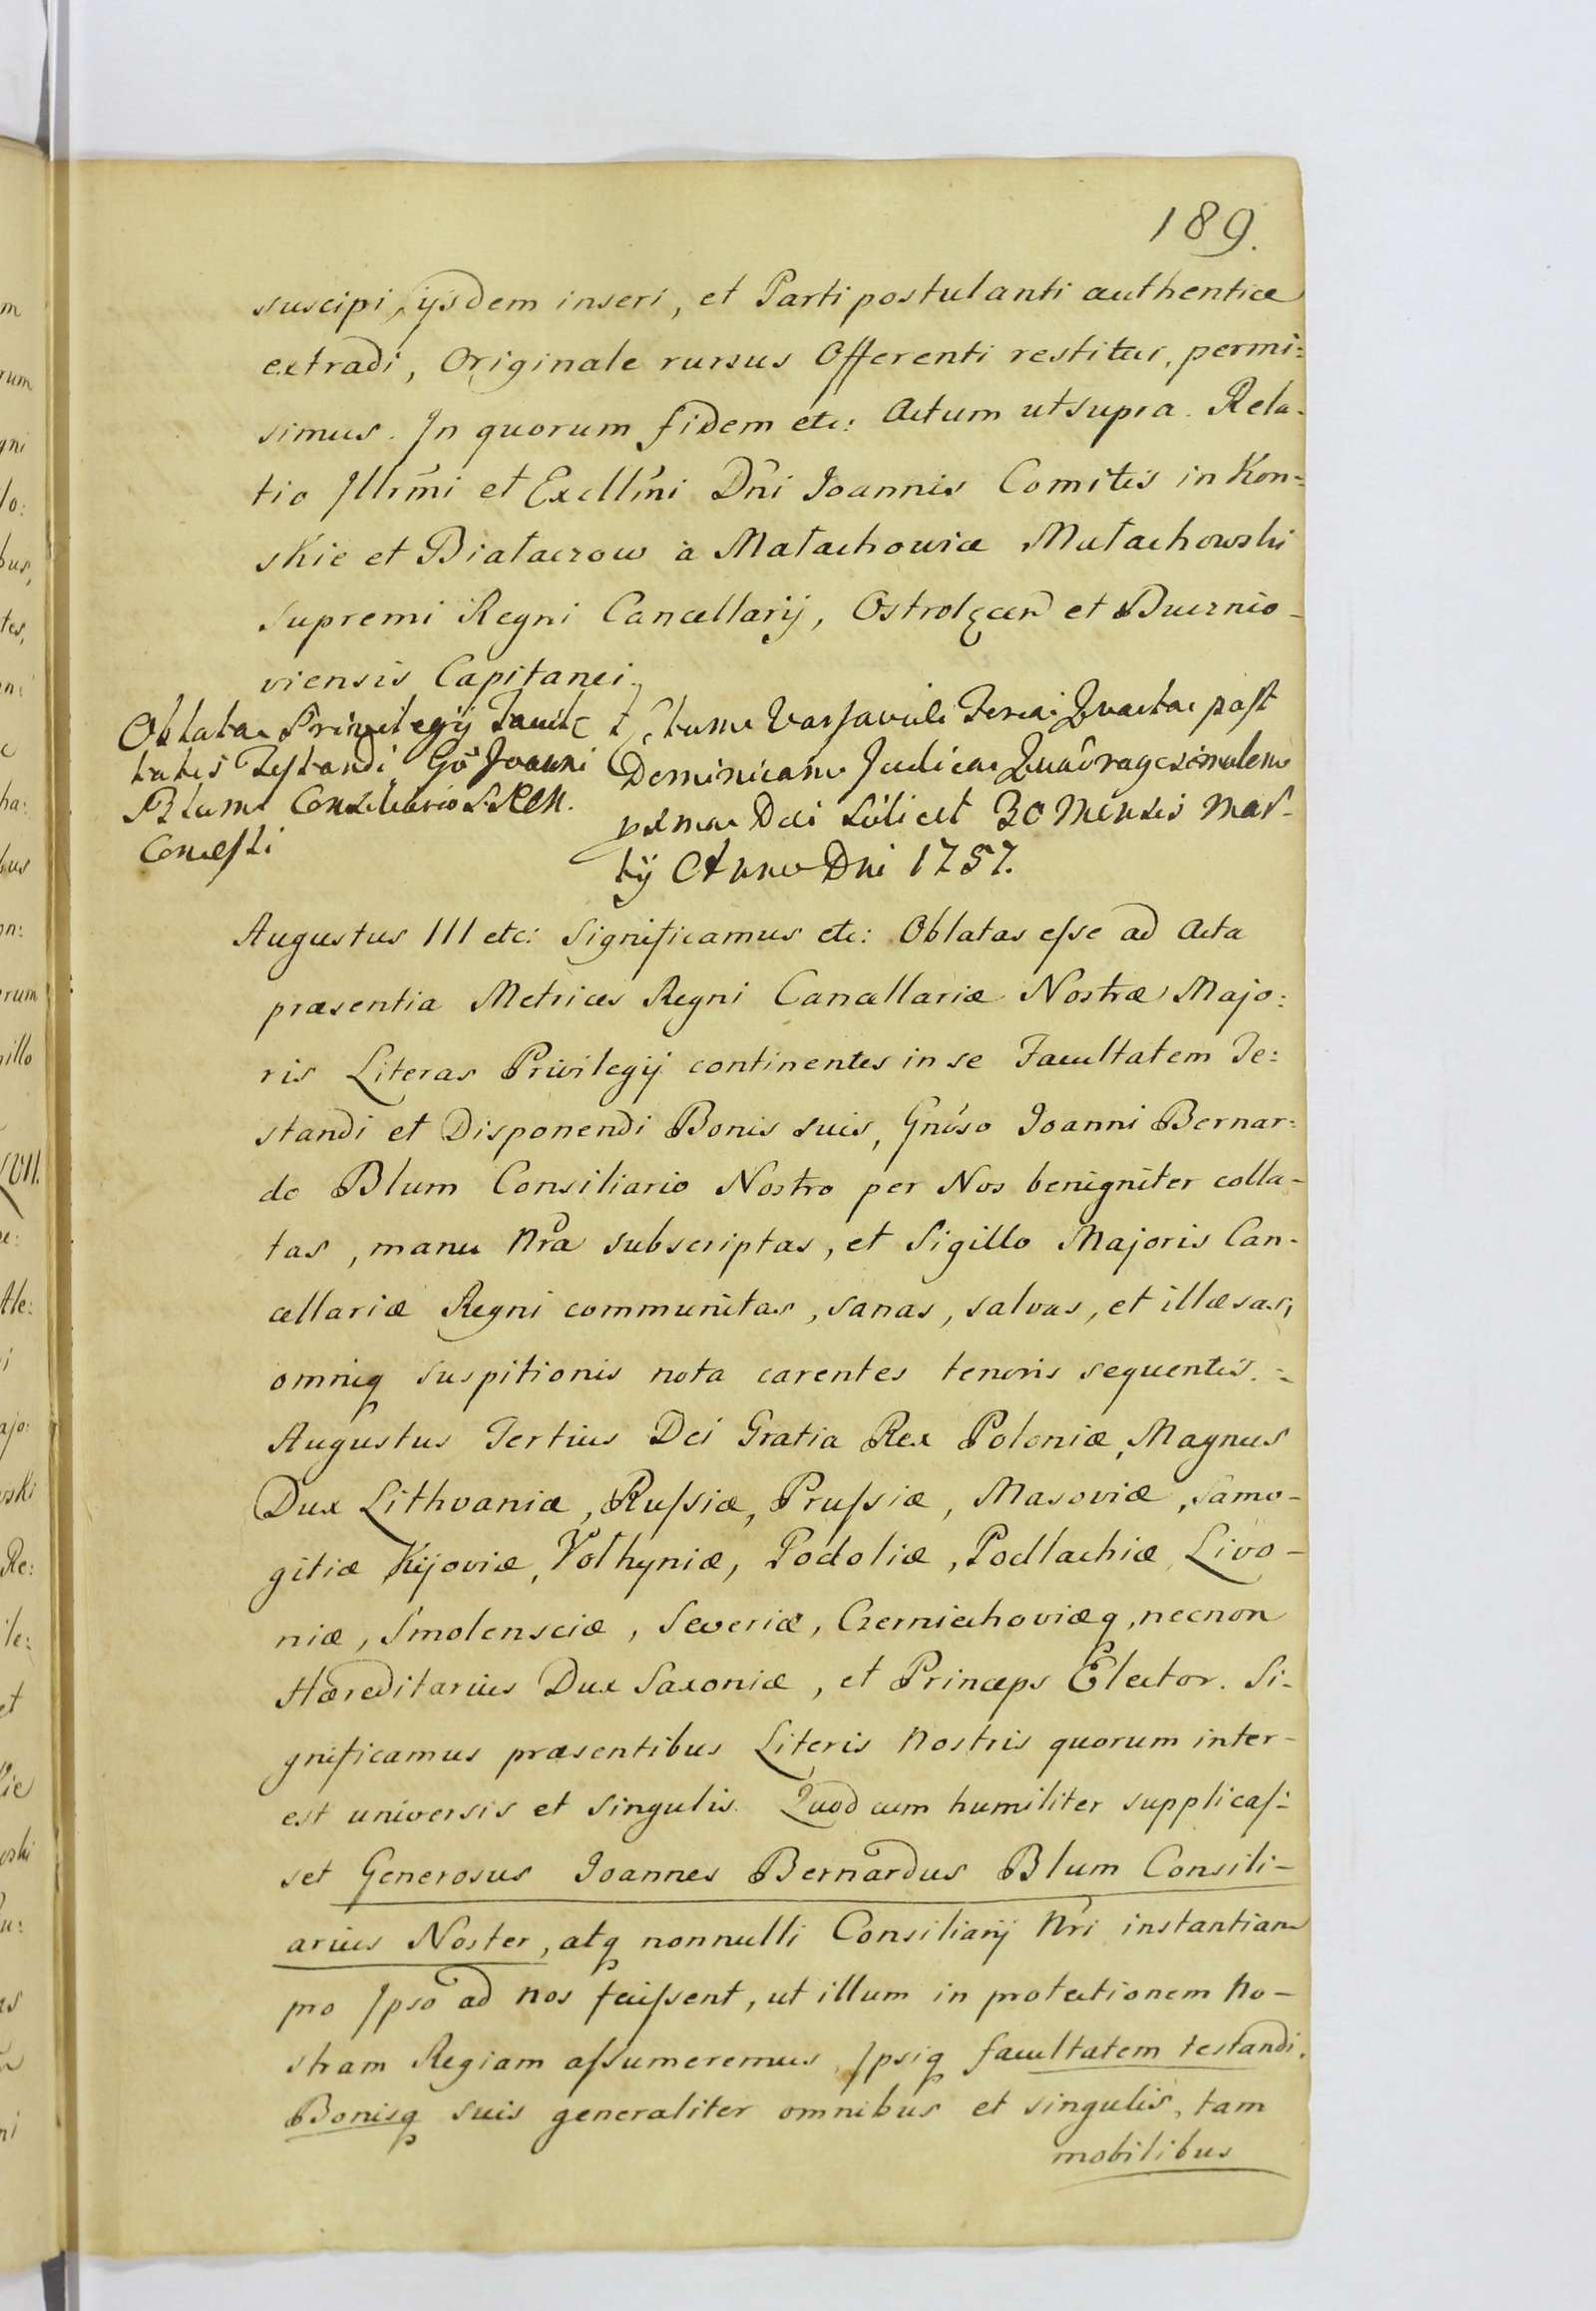 189.
suscipi, ijsdem inseri, et Parti postulanti authentice
extradi, Originale rursus Offerenti restitui, permi:
simus. In quorum fidem etc: Actum ut supra. Rela-
tio Illrmi et Excllmi Dni Joannis Comitis in Kon=
skie et Białaczow à Małachowice Małachowski
Supremi Regni Cancellarij, Ostrolęcen et
viensis Capitanei.
Oblata Privilegij Facul-
tatis Testandi Gso Joanni
Blum Consiliario S. R. M.
Concessi
Actum Varsaviae Feria Quarta post
Dominicam Judica Quadragesimalem
pxma Die Scilicet 30 Mensis Mar-
tij Anno Dni 1757.
Augustus III etc: Significamus etc: Oblatas esse ad Acta
præsentia Metrices Regni Cancellariæ Nostræ Majo:
ris Literas Privilegij continentes in se Facultatem Te:
standi et Disponendi Bonis suis, Gnoso Joanni Bernar:
do Blum Consiliario Nostro per Nos benigniter colla-
tas, manu Nra subscriptas, et Sigillo Majoris Can-
cellariæ Regni communitas, sanas, salvas, et illæsas,
omniq suspitionis nota carentes tenoris sequentis. =
Augustus Tertius Dei Gratia Rex Poloniæ, Magnus
Dux Lithvaniæ, Russiæ, Prussiæ, Masoviæ, Samo-
gitiæ Kijoviæ, Volhyniæ, Podoliæ, Podlachiæ, Livo-
niæ, Smolensciæ, Severiæ, Czerniechoviæq, necnon
Hæreditarius Dux Saxoniæ, et Princeps Elector. Si-
gnificamus præsentibus Literis Nostris quorum inter-
est universis et singulis. Quod cum humiliter supplicas:
set Generosus Joannes Bernardus Blum Consili-
arius Noster, atq nonnulli Consiliarij Nri instantiam
pro Ipso ad nos fecissent, ut illum in protectionem No-
stram Regiam assumeremus, Ipsiq facultatem testandi,
Bonisq suis generaliter omnibus et singulis, tam
mobilibus